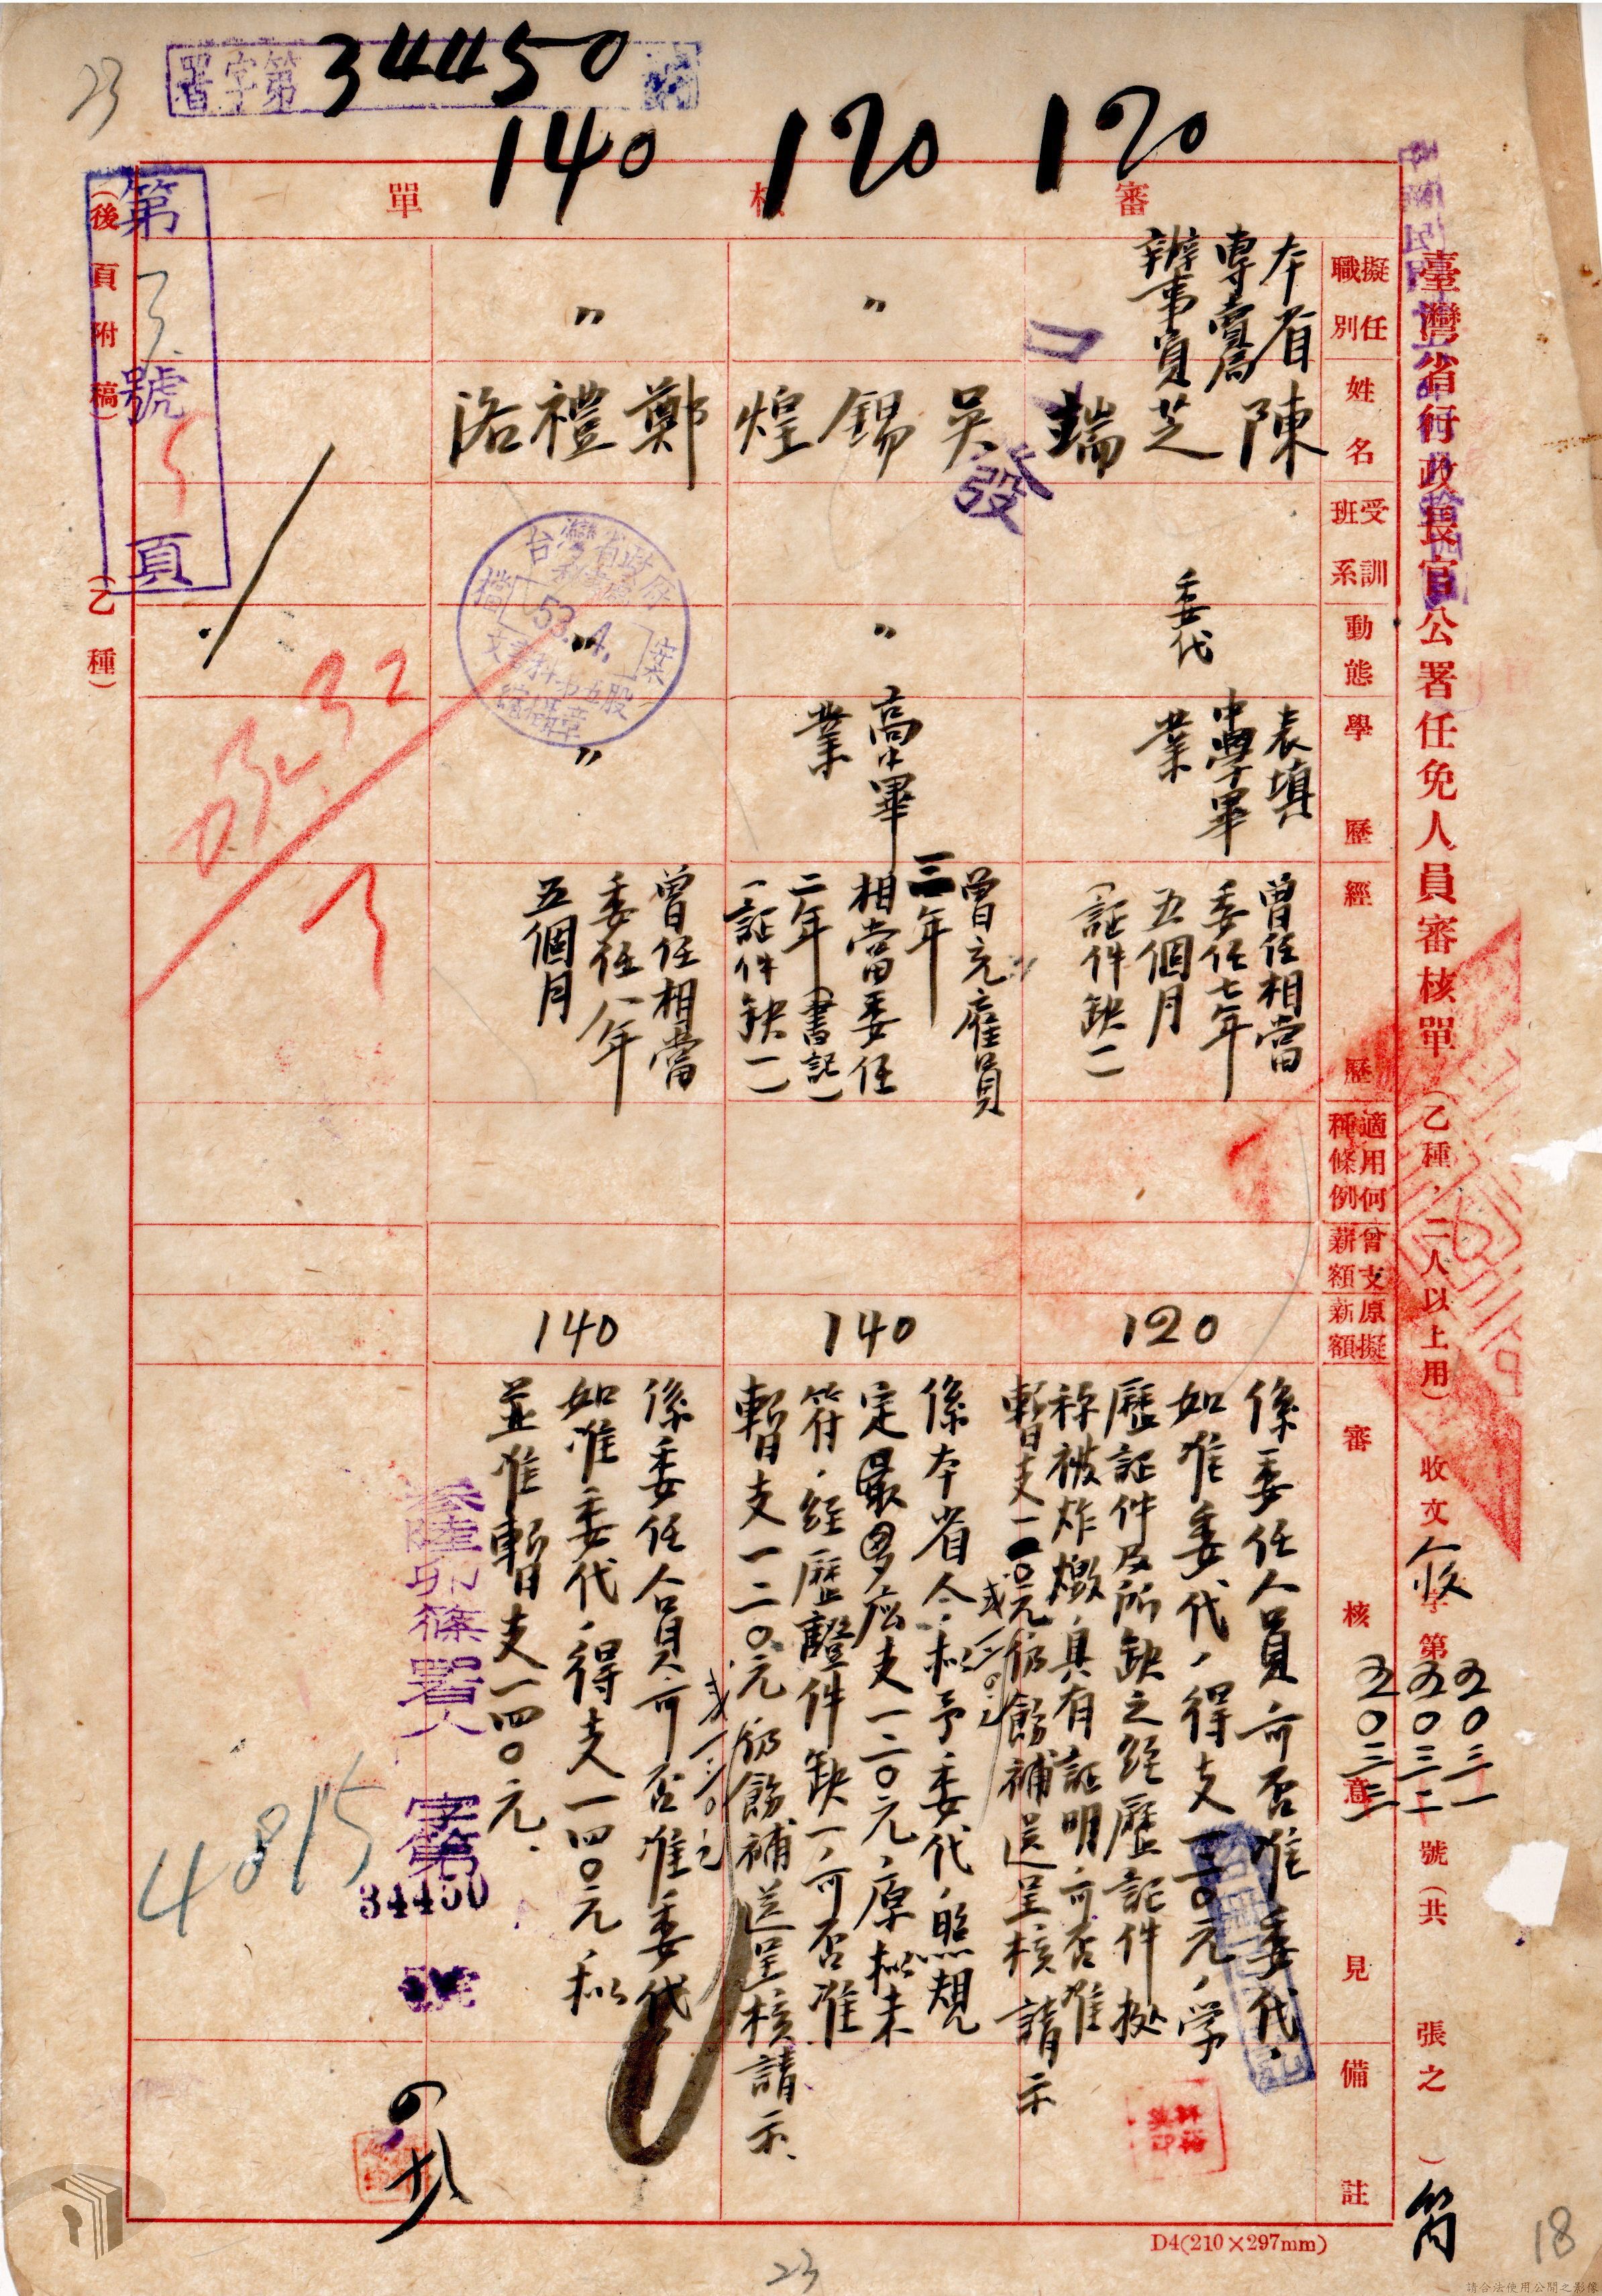 署字第34450號
23
140
120
120
審核單
臺灣省行政長官公署任免人員審核單(乙種,二人以上用)
收文 收 字第 號(共 張之 )
五〇三一
五〇三二
五〇三三
擬任職別
姓名
受訓班系
動態
學歷
經歷
適用何種條例
曾支薪額
原擬薪額
審核意見
備註
本省
專賣局
辦事員
陳芝瑞
委代
表填
中學畢
業
曾任相當
委任七年
五個月
(証件缺二
120
係委任人員可否准委代,
如准委代,得支一二〇元,学
歷証件及所缺之經歷記件挨
稱被炸燬,具有証明可否准
暫支一二〇元仍飭補送呈核請示
〃
吳錫煌
〃
高中畢
業
曾充雇員
三年
相當委任
二年(書記)
(証件缺一)
140
係本省人,擬予委代,照規
定最多應支一二〇元,原擬未
符,經歷證件缺一,可否准
暫支一二〇元仍飭補送呈核請示、
〃
鄭禮洛
〃
〃
曾任相當
委任八年
五個月
140
係委任人員可否准委代,
如准委代,得支一四〇元擬
並准暫支一四〇元.
發
台灣省政府
檔案
53.4.
文書科第五股
第 3 號 5 頁
(後頁附稿)
(乙種)
332
3
署人字第34450號
4815
D4(210×297mm)
23
18
請合法使用公開之影像